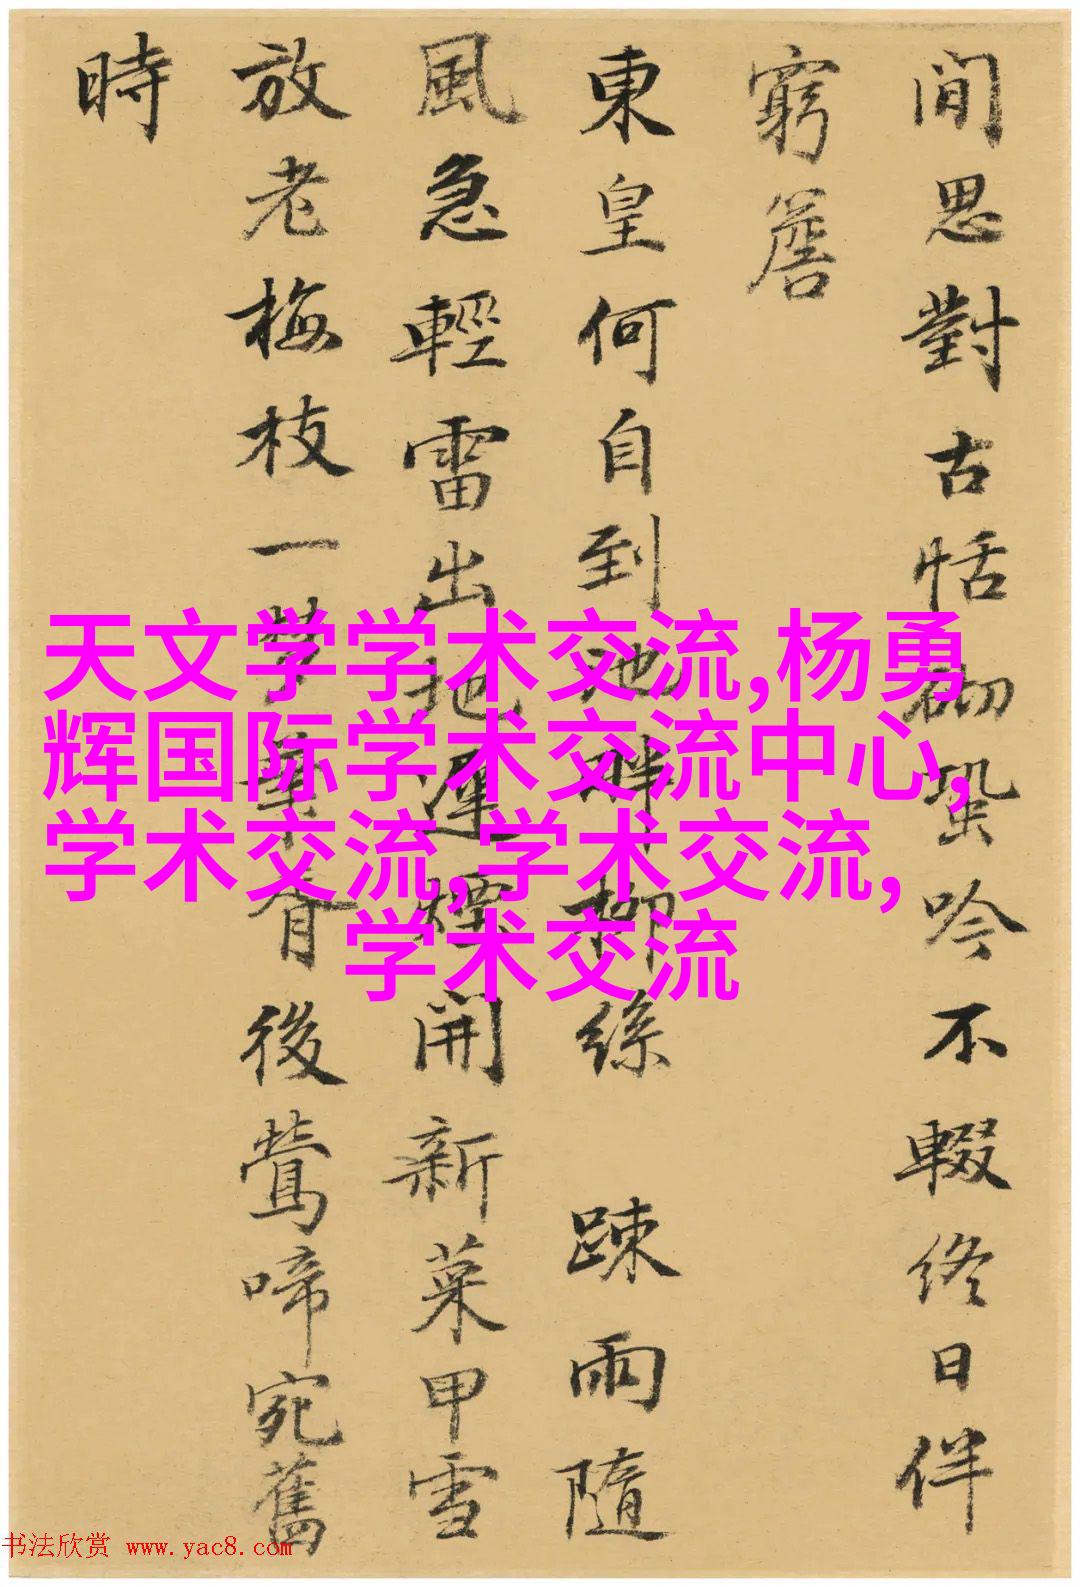 閒思對古恬砌蛩吟不輟終日伴
窮簷
東皇何自到池畔柳絲踈雨隨
風急輕雷出地遲煙開新菜甲雪
放老梅枝一夢華胥後鶯啼宛舊
時
天文学学术交流,杨勇
辉国际学术交流中心,
学术交流,学术交流,
学术交流
书法欣赏 www.yac8.com